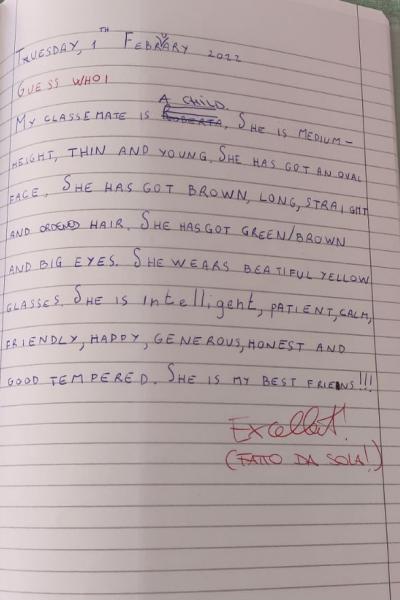 TRUESDAY, 1TH FEBRYARY 2022
GUESS WHO!
MY CLASSEMATE IS A CHILD. SHE IS MEDIUM-
HEIGHT, THIN AND YOUNG. SHE HAS GOT AN OVAL
FACE. SHE HAS GOT BROWN, LONG, STRAIGHT
AND ORDERED HAIR. SHE HAS GOT GREEN/BROWN
AND BIG EYES. SHE WEARS BEATIFUL YELLOW
GLASSES. SHE IS intelligent, PATIENT, CALM,
FRIENDLY, HAPPY, GENEROUS, HONEST AND
GOOD TEMPERED. SHE IS MY BEST FRIENS!!!
Excellent!
(FATTO DA SOLA!)